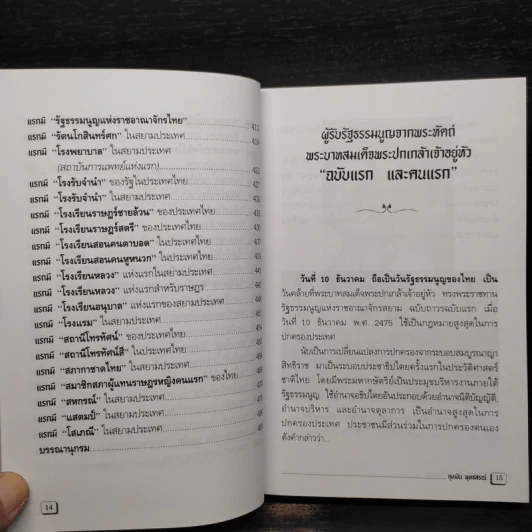 แรกมี “รัฐธรรมนูญแห่งราชอาณาจักรไทย”
แรกมี “รัตนโกสินทร์ศก” ในสยามประเทศ
แรกมี “โรงพยาบาล” ในสยามประเทศ
(สถาบันการแพทย์แห่งแรก)
แรกมี “โรงรับจำนำ” ของรัฐในประเทศไทย
แรกมี “โรงรับจำนำ” ในสยามประเทศ
แรกมี “โรงเรียนราษฎร์ชายล้วน” ของประเทศไทย
แรกมี “โรงเรียนราษฎร์สตรี” ของประเทศไทย
แรกมี “โรงเรียนสอนคนตาบอด” ในประเทศไทย
แรกมี “โรงเรียนสอนคนหูหนวก” ในประเทศไทย
แรกมี “โรงเรียนหลวง” แห่งแรกในสยามประเทศ
แรกมี “โรงเรียนหลวง” แห่งแรกสำหรับราษฎร
แรกมี “โรงเรียนอนุบาล” แห่งแรกของสยามประเทศ
แรกมี “โรงแรม” ในสยามประเทศ
แรกมี “สถานีโทรทัศน์” ในประเทศไทย
แรกมี “สถานีโทรทัศน์สี” ในประเทศไทย
แรกมี “สภากาชาดไทย” ในสยามประเทศ
แรกมี “สมาชิกสภาผู้แทนราษฎรหญิงคนแรก” ของไทย
แรกมี “สหกรณ์” ในสยามประเทศ
แรกมี “แสตมป์” ในสยามประเทศ
แรกมี “โสเภณี” ในสยามประเทศ
บรรณานุกรม
14
ผู้รับรัฐธรรมนูญจากพระหัตถ์
พระบาทสมเด็จพระปกเกล้าเจ้าอยู่หัว
“ฉบับแรก และคนแรก”
วันที่ 10 ธันวาคม ถือเป็นวันรัฐธรรมนูญของไทย เป็น
วันคล้ายที่พระบาทสมเด็จพระปกเกล้าเจ้าอยู่หัว ทรงพระราชทาน
รัฐธรรมนูญแห่งราชอาณาจักรสยาม ฉบับถาวรฉบับแรก เมื่อ
วันที่ 10 ธันวาคม พ.ศ. 2475 ใช้เป็นกฎหมายสูงสุดในการ
ปกครองประเทศ
นับเป็นการเปลี่ยนแปลงการปกครองจากระบอบสมบูรณาญา
สิทธิราช มาเป็นระบอบประชาธิปไตยครั้งแรกในประวัติศาสตร์
ชาติไทย โดยมีพระมหากษัตริย์เป็นประมุขบริหารงานภายใต้
รัฐธรรมนูญ ใช้อำนาจอธิปไตยอันประกอบด้วยอำนาจนิติบัญญัติ,
อำนาจบริหาร และอำนาจตุลาการ เป็นอำนาจสูงสุดในการ
ปกครองประเทศ ประชาชนมีส่วนร่วมในการปกครองตนเอง
ดังคำกล่าวว่า...
15